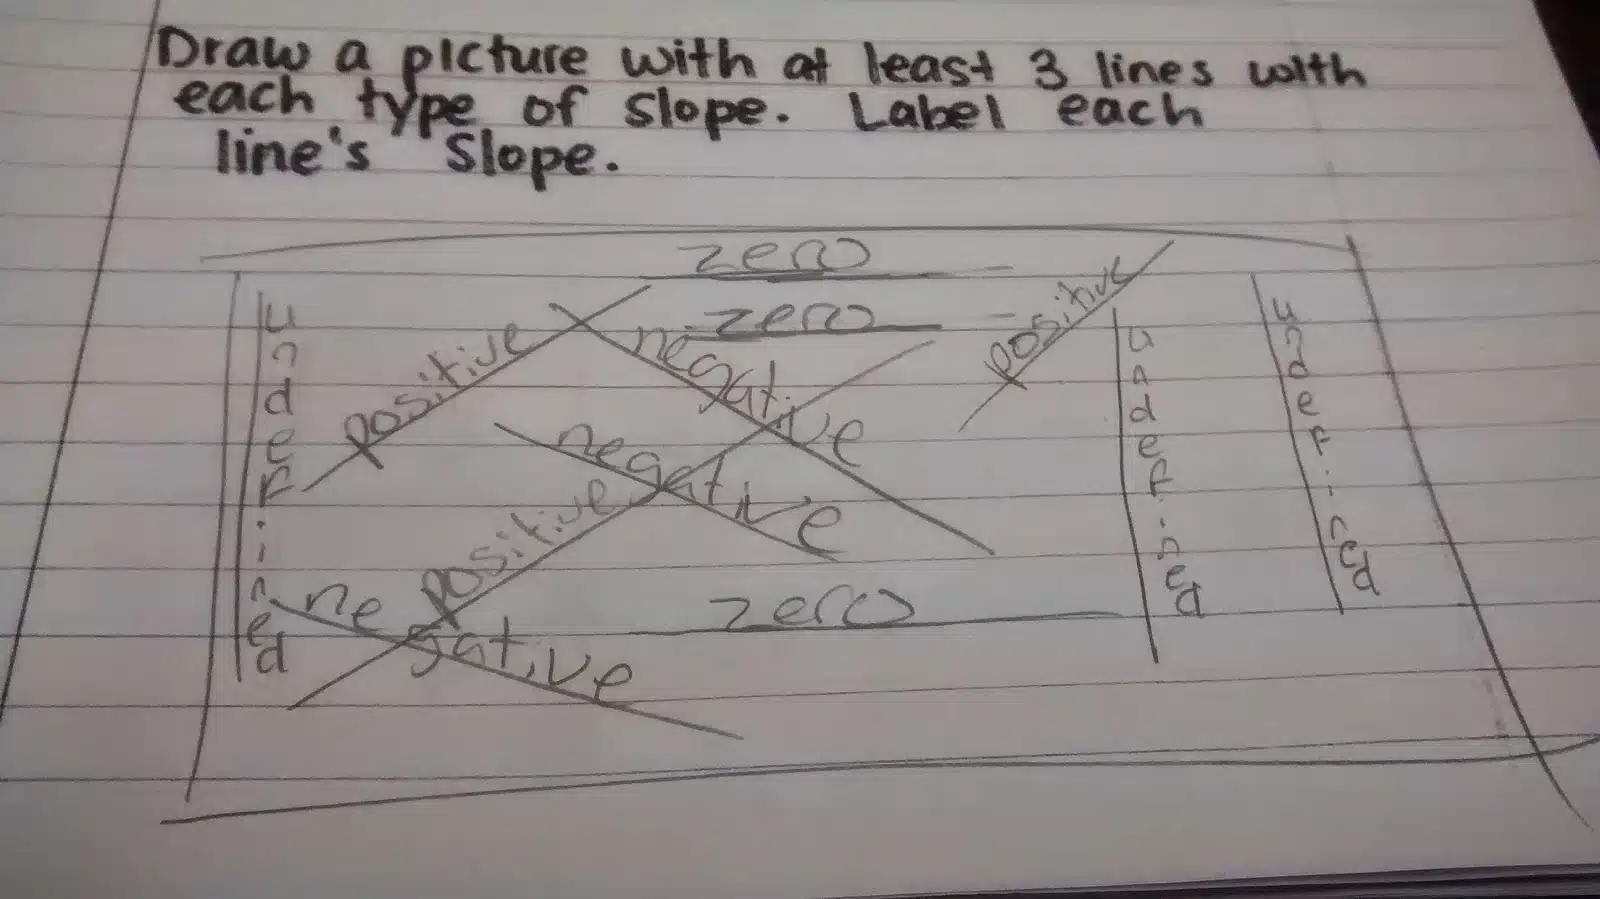 Draw a picture with at least 3 lines with
each type of slope. Label each
line's Slope.
zero
zero
positive
undefined
positive
negative
undefined
undefined
negative
positive
zero
negative